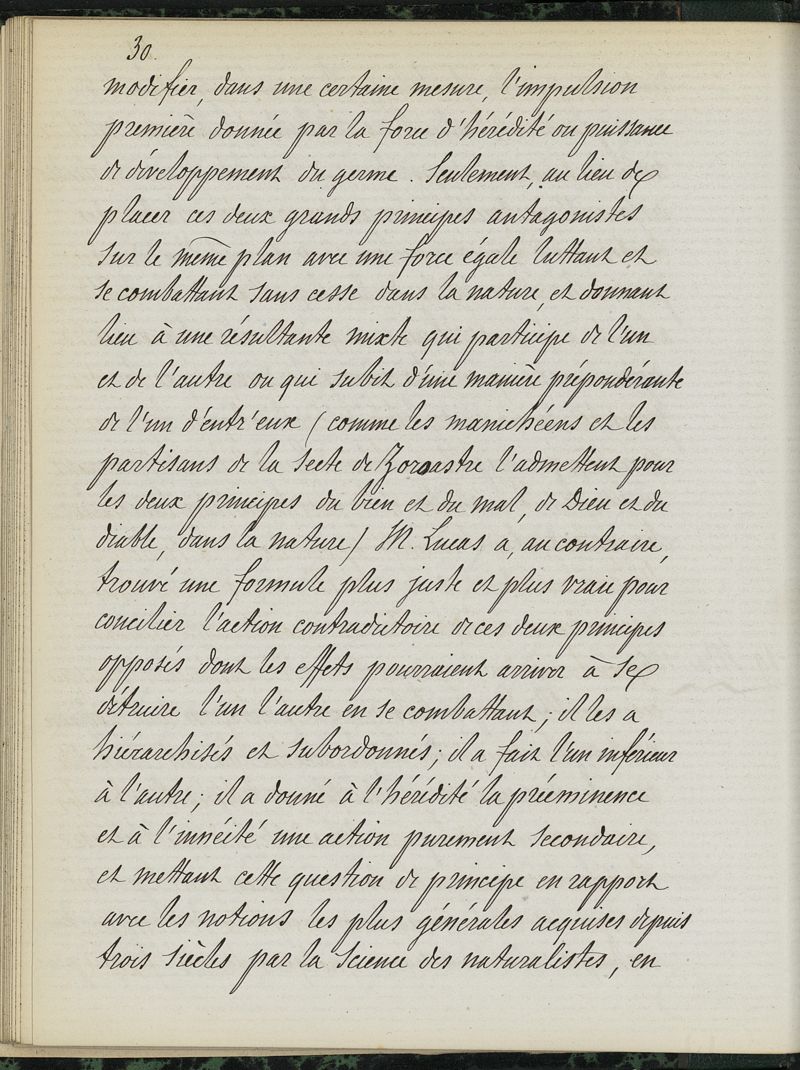 30.
modifier, dans une certaine mesure, l'impulsion
première donnée par la force d'hérédité ou puissance
de développement du germe. Seulement, au lieu de
placer ces deux grands principes antagonistes
sur le même plan avec une force égale luttant et
se combattant sans cesse dans la nature, et donnant
lieu à une résultante mixte qui participe de l'un
et de l'autre ou qui subit d'une manière prépondérante
de l'un d'entr'eux (comme les manichéens et les
partisans de la secte de Zoroastre l'admettent pour
les deux principes du bien et du mal, de Dieu et du
diable, dans la nature) M. Lucas a, au contraire,
trouvé une formule plus juste et plus vraie pour
concilier l'action contradictoire de ces deux principes
opposés dont les effets pourraient arriver à se
détruire l'un l'autre en se combattant; il les a
hiérarchisés et subordonnés; il a fait l'un inférieur
à l'autre; il a donné à l'hérédité la prééminence
et à l'innéité une action purement secondaire,
et mettant cette question de principe en rapport
avec les notions les plus générales acquises depuis
trois siècles par la science des naturalistes, en